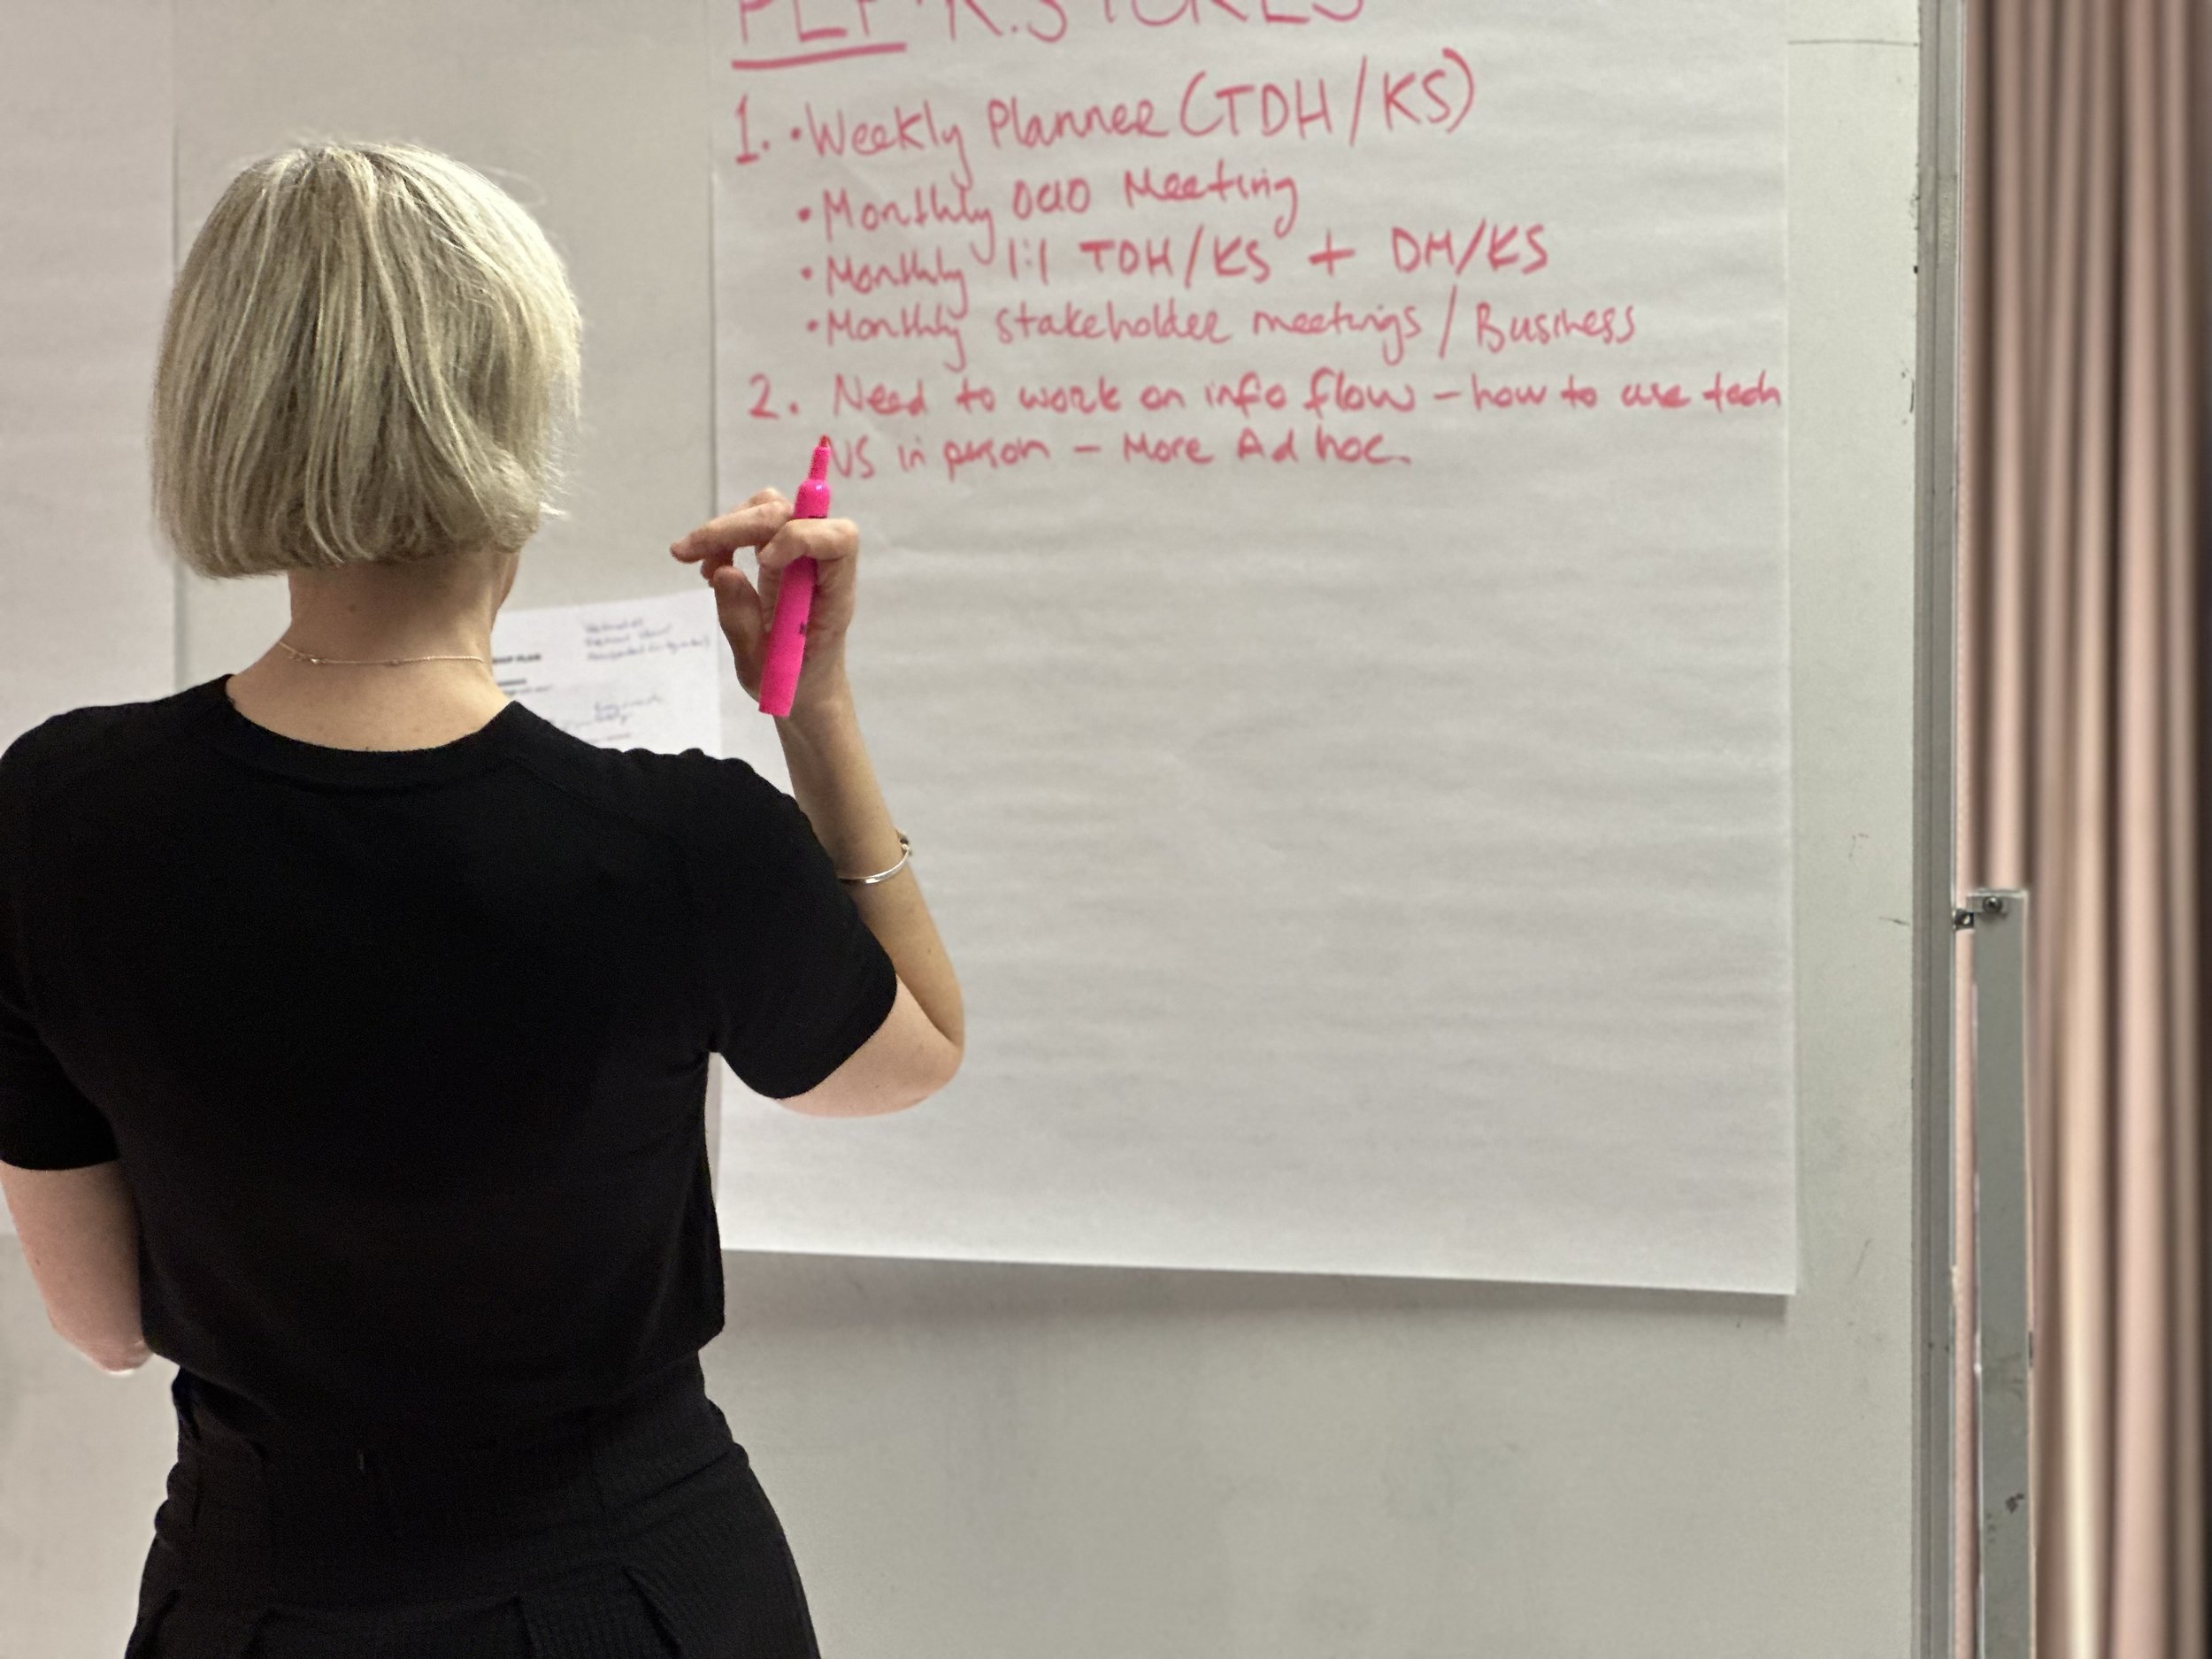 K. STOKES
1. • Weekly Planner (TDH/KS)
• Monthly Meeting
• Monthly 1:1 TDH/KS + DM/KS
• Monthly stakeholder meetings / Business
2. Need to work on info flow – how to use tech
VS in person – More Ad hoc.
PLAN